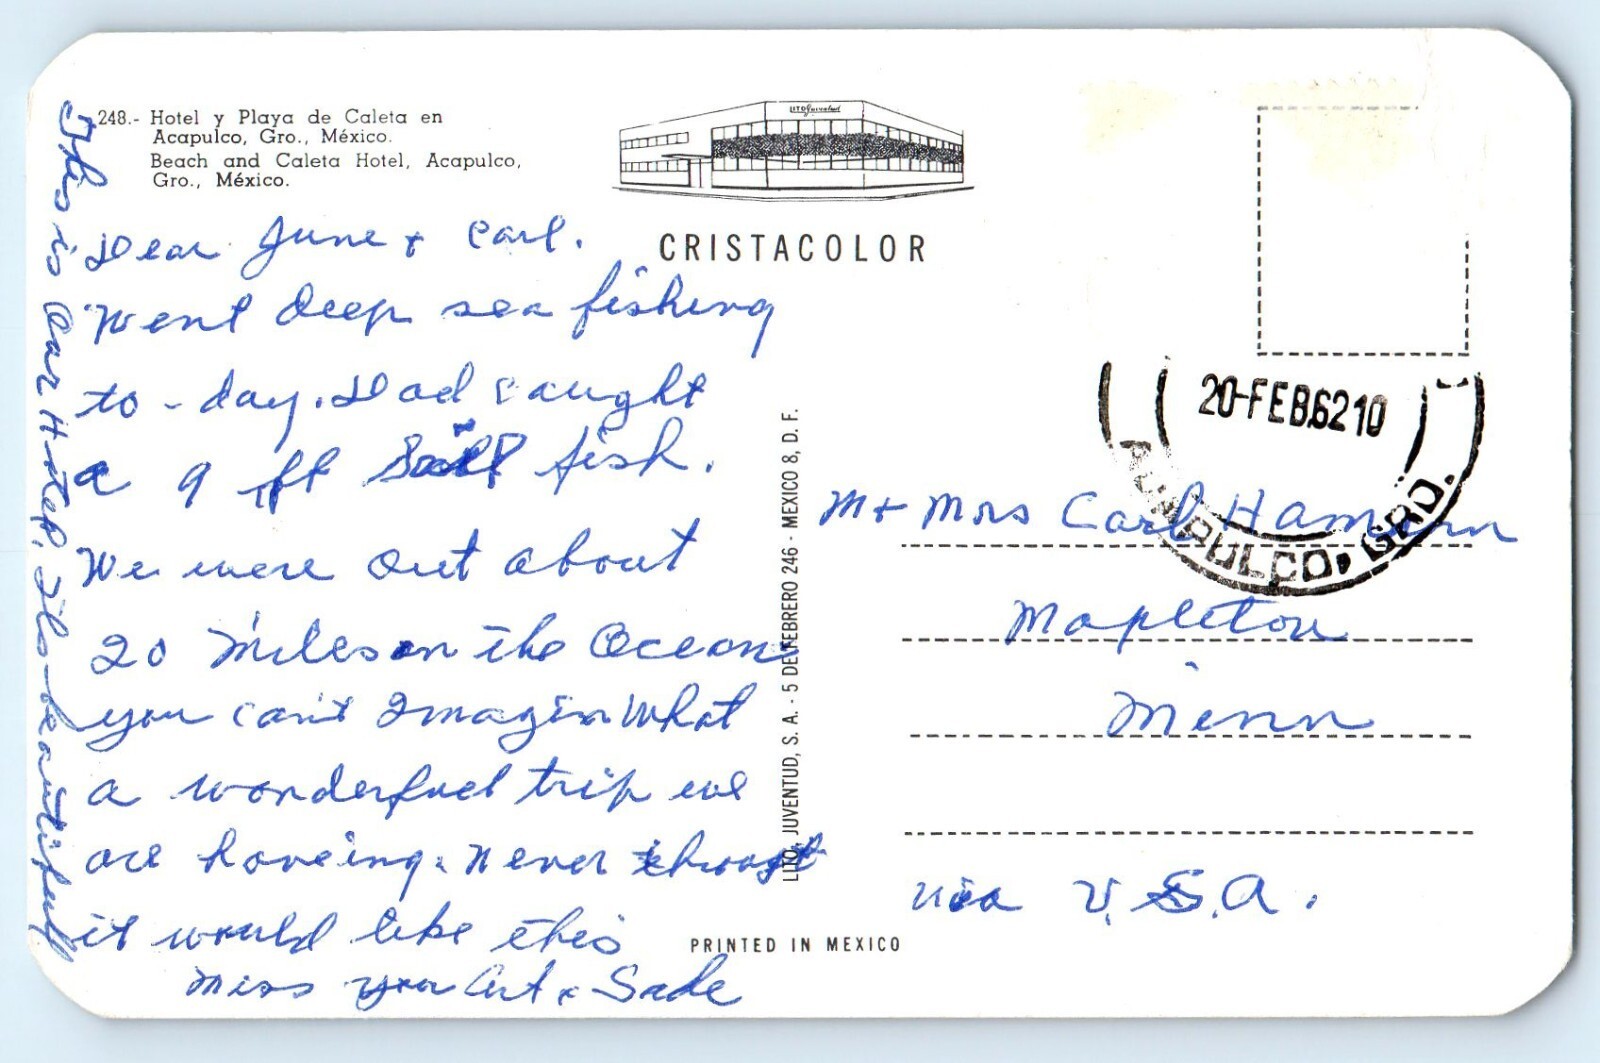 248.- Hotel y Playa de Caleta en
Acapulco, Gro., México.
Beach and Caleta Hotel, Acapulco,
Gro., México.
LITO Juventud
CRISTACOLOR
Dear June + Carl.
Went deep sea fishing
to-day. Dad caught
a 9 ft Sail fish.
We were out about
20 Miles on the Ocean
you can't Imagin What
a wonderful trip we
are haveing. Never thought
it would like this
Miss you Art + Sade
This is Our Hotel. Its beautiful
LITO, JUVENTUD, S. A. - 5 DE FEBRERO 246 - MEXICO 8, D. F.
PRINTED IN MEXICO
20-FEB.62 10
ACAPULCO, GRO.
Mr + Mrs Carl
Mapleton
Minn
via U.S.A.